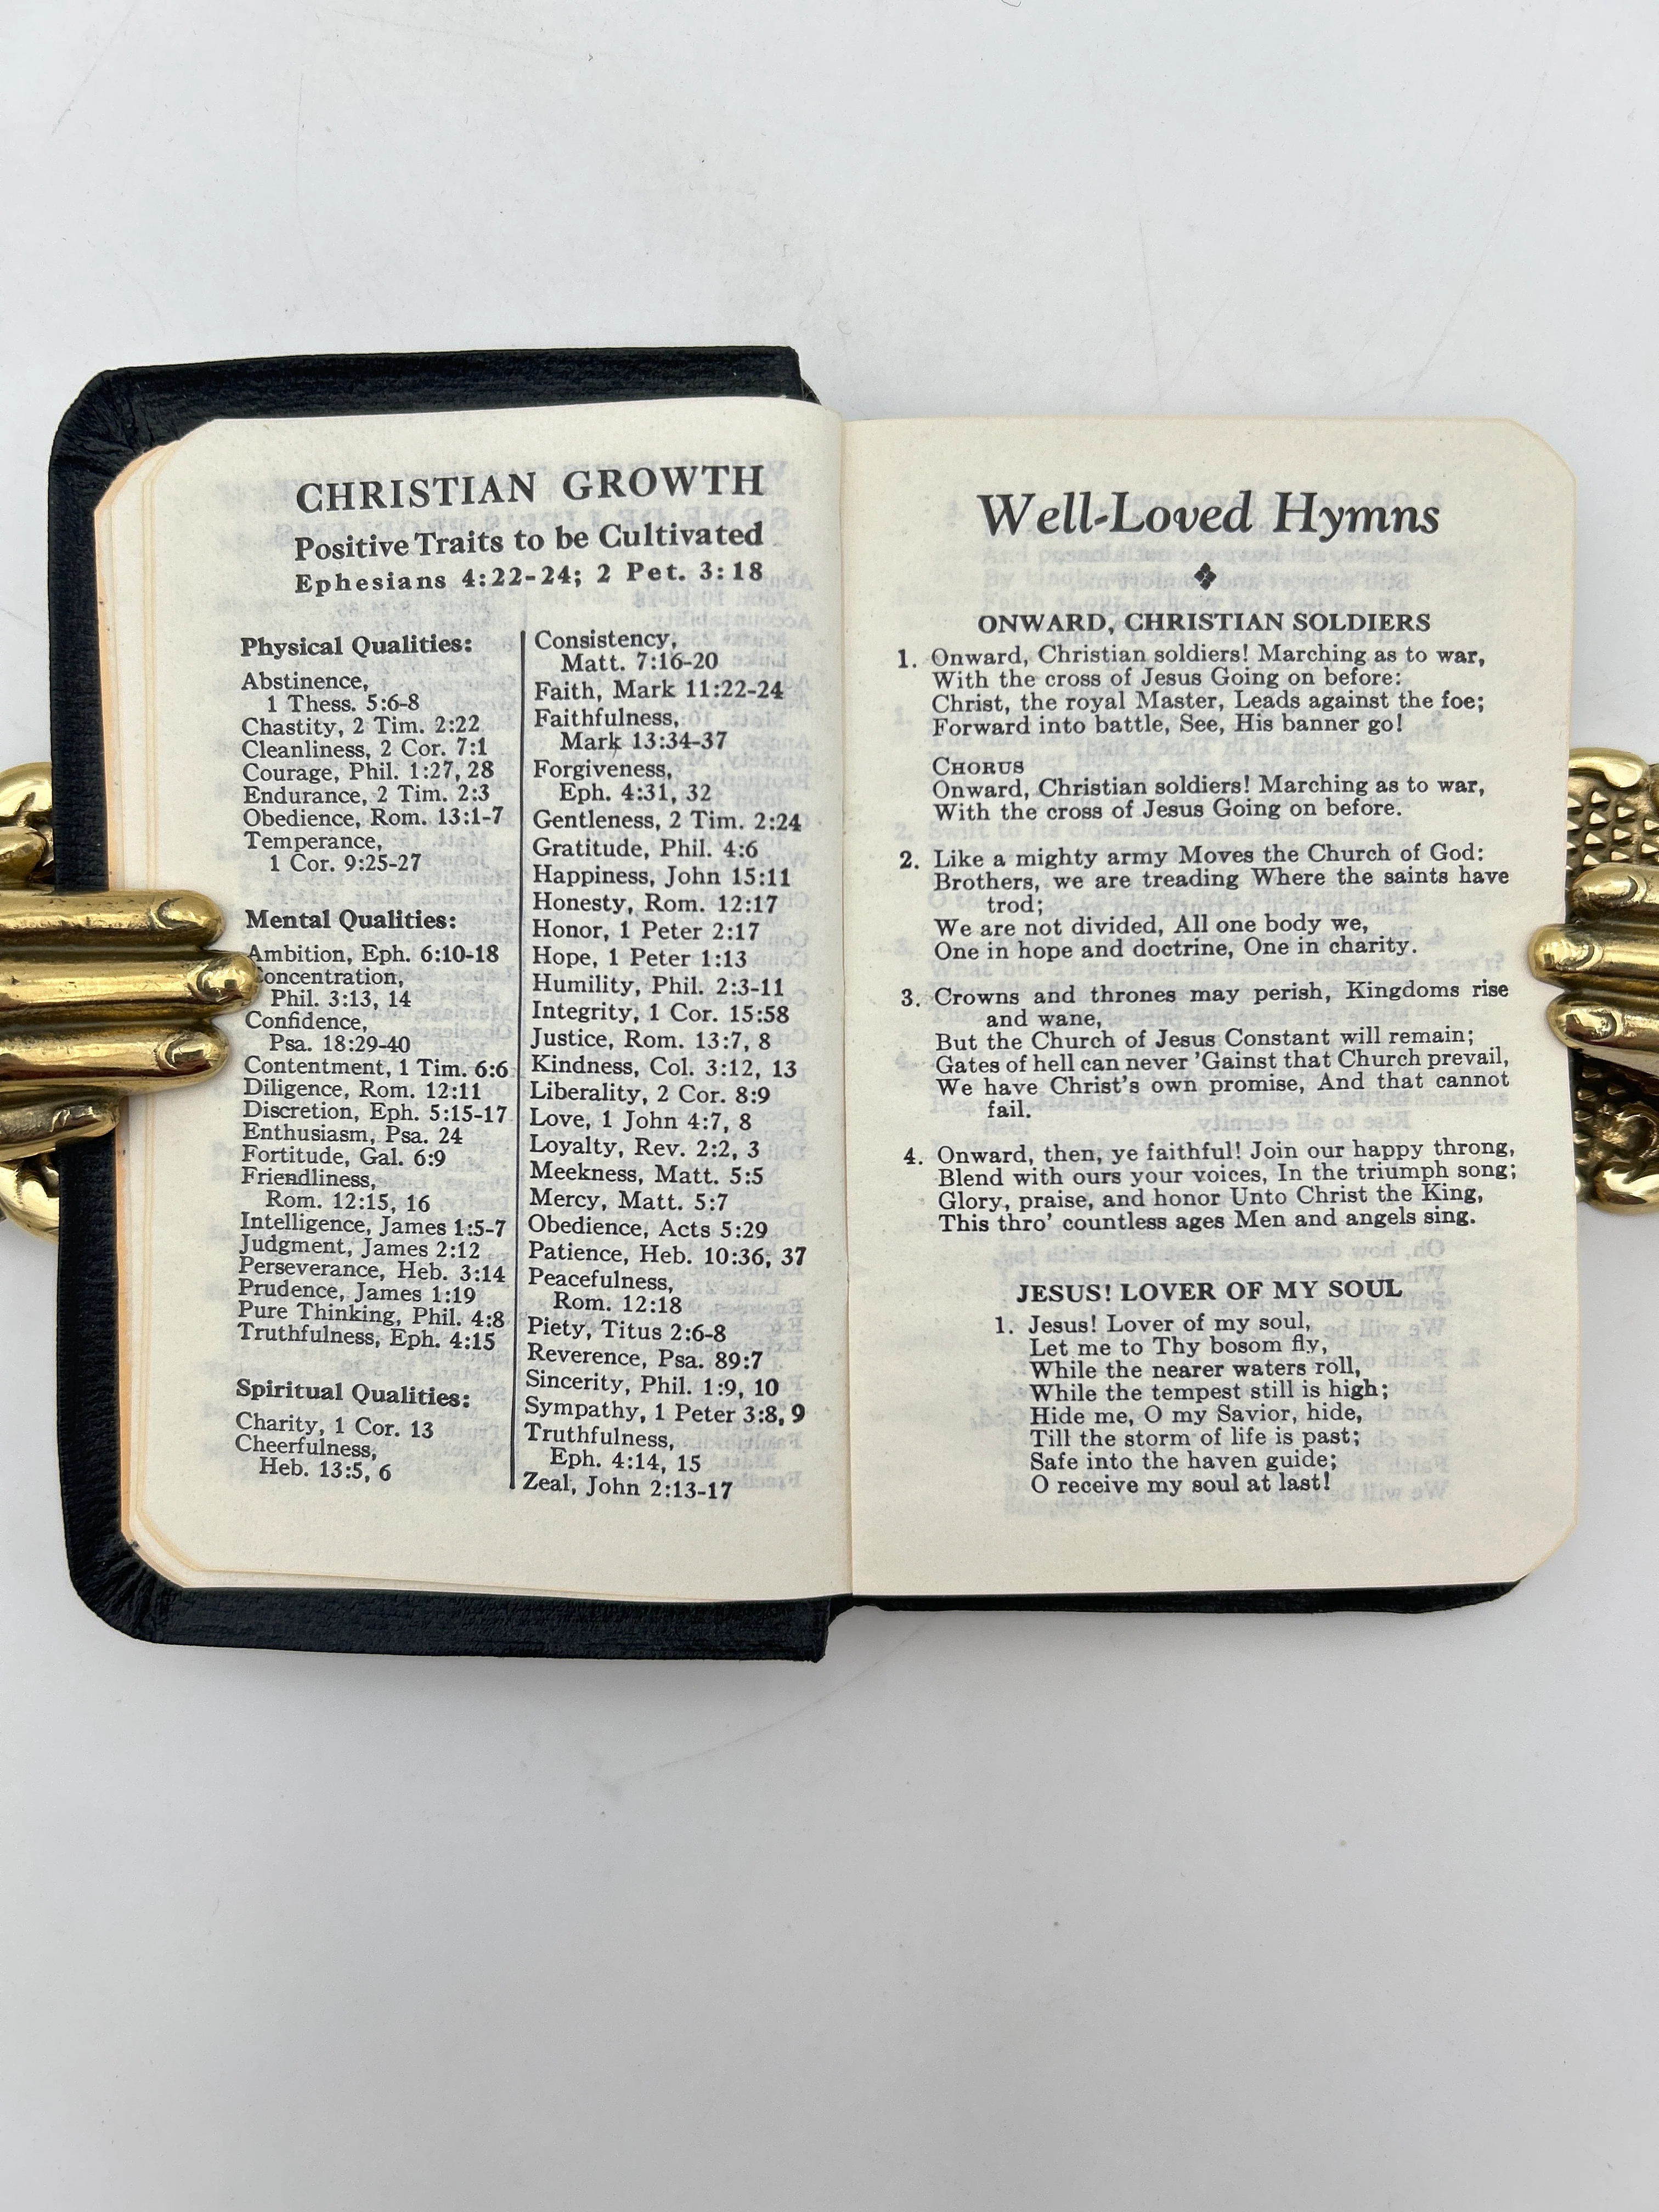 CHRISTIAN GROWTH
Positive Traits to be Cultivated
Ephesians 4:22-24; 2 Pet. 3:18
Physical Qualities:
Abstinence,
1 Thess. 5:6-8
Chastity, 2 Tim. 2:22
Cleanliness, 2 Cor. 7:1
Courage, Phil. 1:27, 28
Endurance, 2 Tim. 2:3
Obedience, Rom. 13:1-7
Temperance,
1 Cor. 9:25-27
Mental Qualities:
Ambition, Eph. 6:10-18
Concentration,
Phil. 3:13, 14
Confidence,
Psa. 18:29-40
Contentment, 1 Tim. 6:6
Diligence, Rom. 12:11
Discretion, Eph. 5:15-17
Enthusiasm, Psa. 24
Fortitude, Gal. 6:9
Friendliness,
Rom. 12:15, 16
Intelligence, James 1:5-7
Judgment, James 2:12
Perseverance, Heb. 3:14
Prudence, James 1:19
Pure Thinking, Phil. 4:8
Truthfulness, Eph. 4:15
Spiritual Qualities:
Charity, 1 Cor. 13
Cheerfulness,
Heb. 13:5, 6
Consistency,
Matt. 7:16-20
Faith, Mark 11:22-24
Faithfulness,
Mark 13:34-37
Forgiveness,
Eph. 4:31, 32
Gentleness, 2 Tim. 2:24
Gratitude, Phil. 4:6
Happiness, John 15:11
Honesty, Rom. 12:17
Honor, 1 Peter 2:17
Hope, 1 Peter 1:13
Humility, Phil. 2:3-11
Integrity, 1 Cor. 15:58
Justice, Rom. 13:7, 8
Kindness, Col. 3:12, 13
Liberality, 2 Cor. 8:9
Love, 1 John 4:7, 8
Loyalty, Rev. 2:2, 3
Meekness, Matt. 5:5
Mercy, Matt. 5:7
Obedience, Acts 5:29
Patience, Heb. 10:36, 37
Peacefulness,
Rom. 12:18
Piety, Titus 2:6-8
Reverence, Psa. 89:7
Sincerity, Phil. 1:9, 10
Sympathy, 1 Peter 3:8, 9
Truthfulness,
Eph. 4:14, 15
Zeal, John 2:13-17
Well-Loved Hymns
ONWARD, CHRISTIAN SOLDIERS
1. Onward, Christian soldiers! Marching as to war,
With the cross of Jesus Going on before:
Christ, the royal Master, Leads against the foe;
Forward into battle, See, His banner go!
CHORUS
Onward, Christian soldiers! Marching as to war,
With the cross of Jesus Going on before.
2. Like a mighty army Moves the Church of God:
Brothers, we are treading Where the saints have
trod;
We are not divided, All one body we,
One in hope and doctrine, One in charity.
3. Crowns and thrones may perish, Kingdoms rise
and wane,
But the Church of Jesus Constant will remain;
Gates of hell can never 'Gainst that Church prevail,
We have Christ's own promise, And that cannot
fail.
4. Onward, then, ye faithful! Join our happy throng,
Blend with ours your voices, In the triumph song;
Glory, praise, and honor Unto Christ the King,
This thro' countless ages Men and angels sing.
JESUS! LOVER OF MY SOUL
1. Jesus! Lover of my soul,
Let me to Thy bosom fly,
While the nearer waters roll,
While the tempest still is high;
Hide me, O my Savior, hide,
Till the storm of life is past;
Safe into the haven guide;
O receive my soul at last!